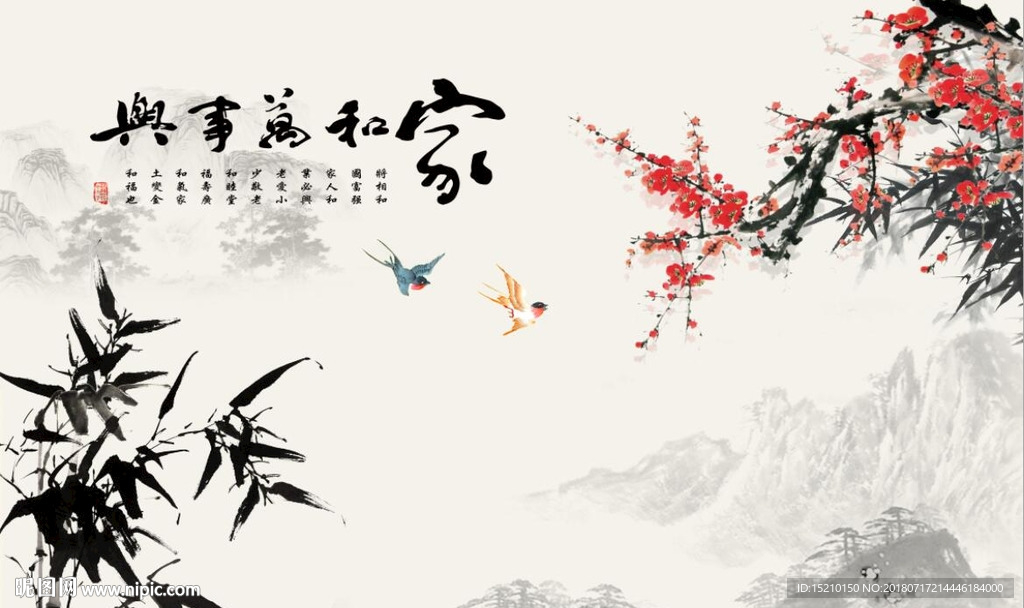 家和萬事興
將相和
國富强
家人和
業必興
老愛小
少敬老
和睦堂
福壽廣
和氣家
土變金
和福也
昵图网 www.nipic.com
ID:15210150 NO:20180717214446184000